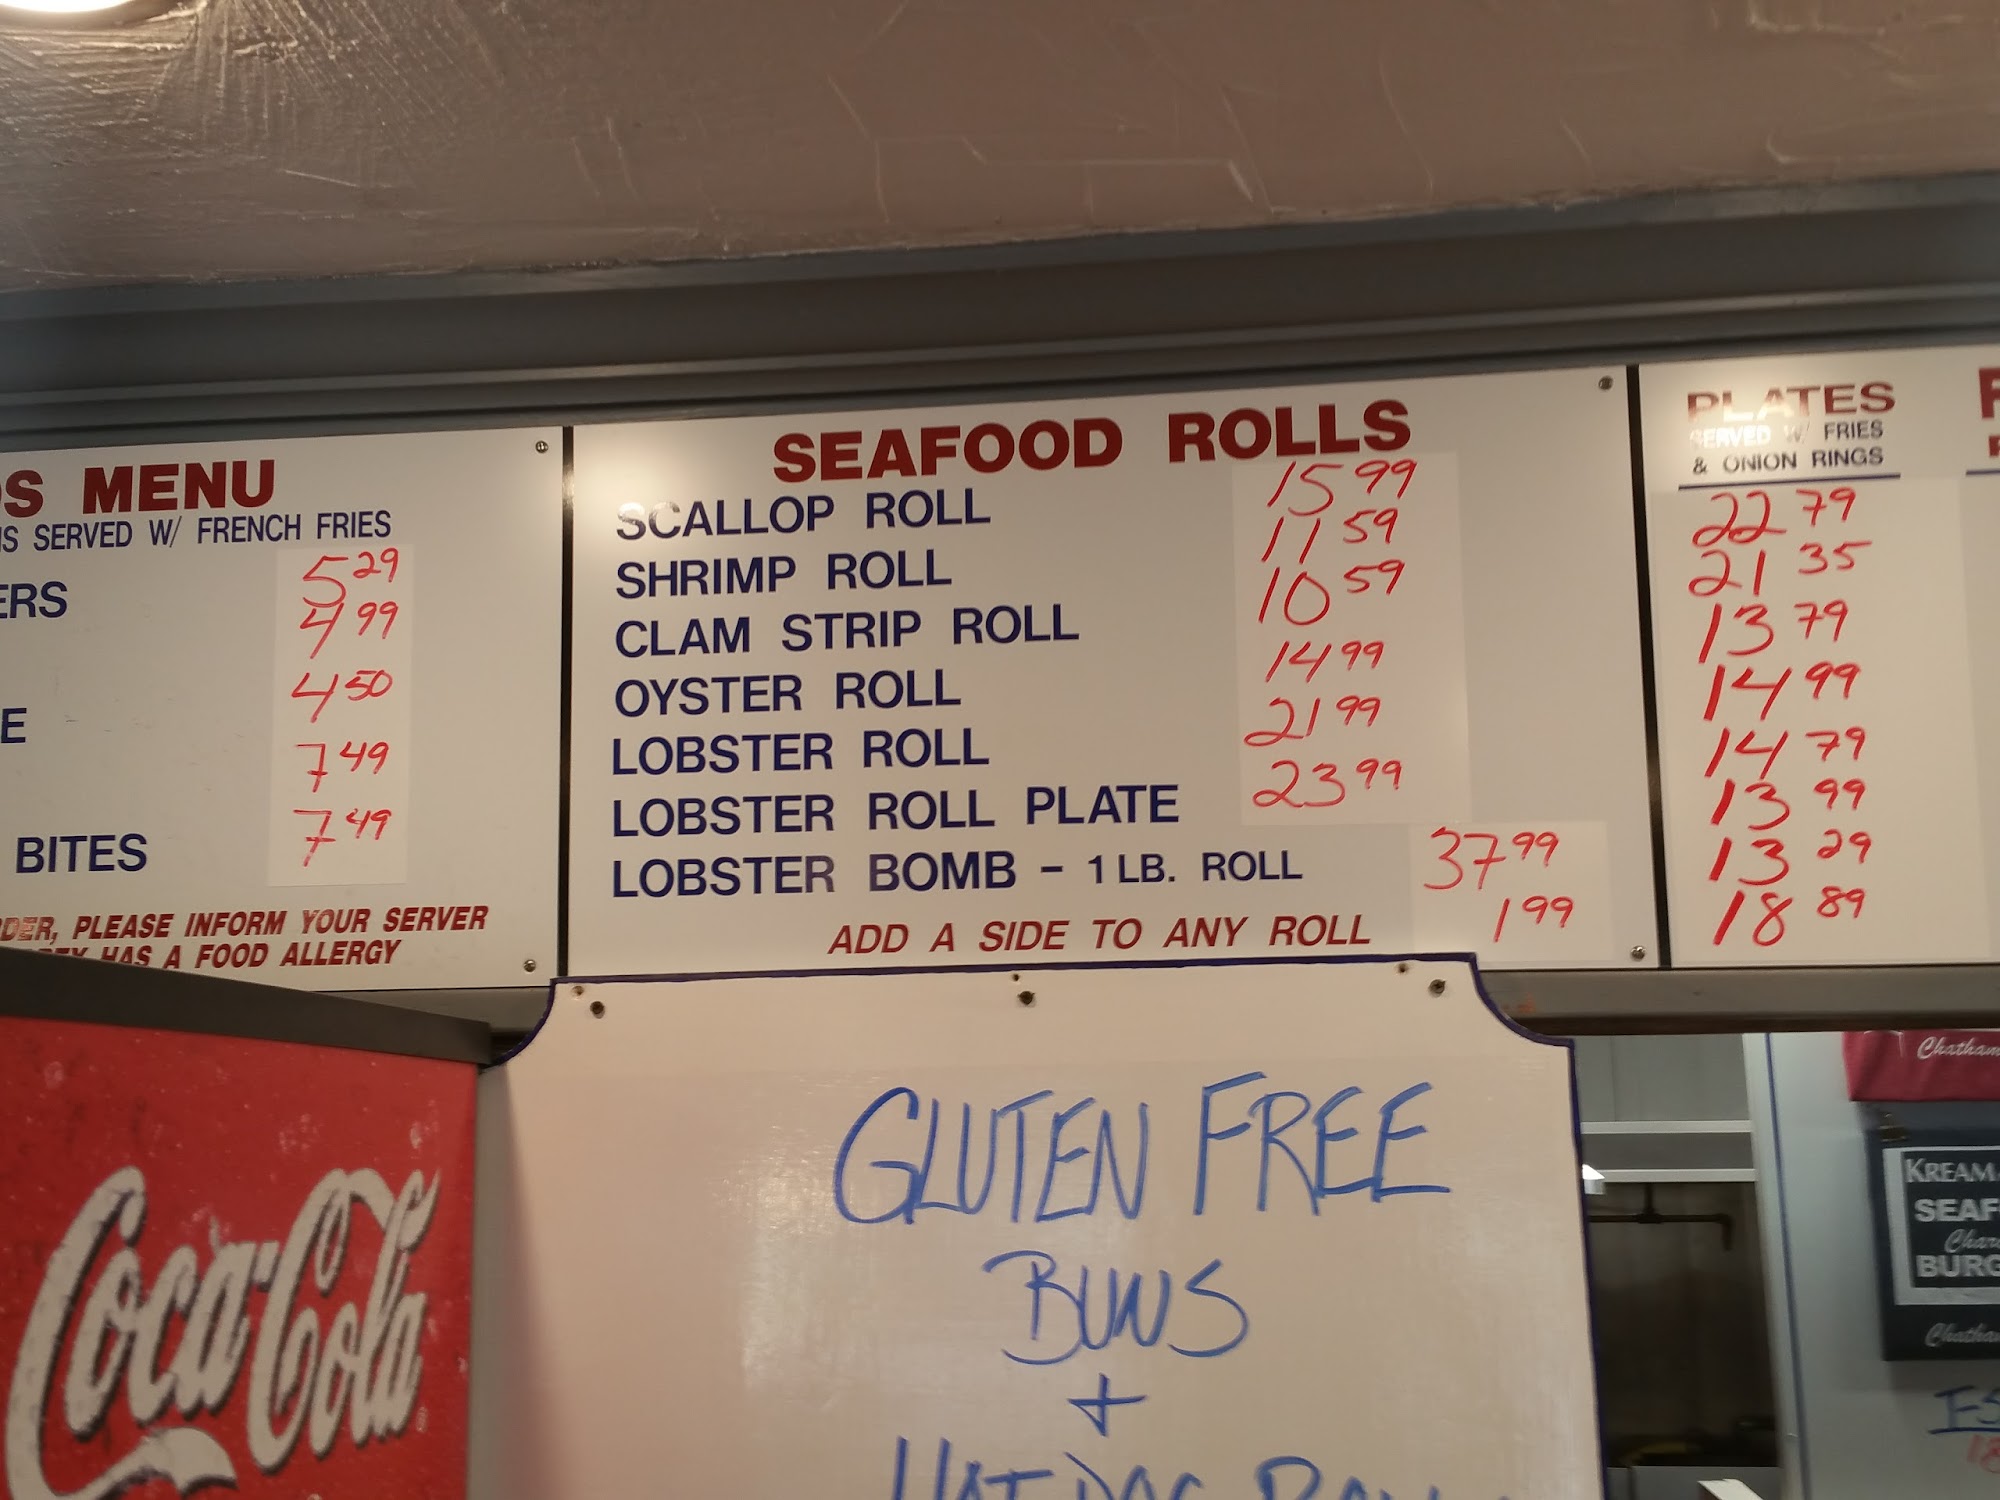 MENU
SERVED W/ FRENCH FRIES
5 29
4 99
4 50
7 49
BITES 7 49
PLEASE INFORM YOUR SERVER
HAS A FOOD ALLERGY
SEAFOOD ROLLS
SCALLOP ROLL 15 99
SHRIMP ROLL 11 59
CLAM STRIP ROLL 10 59
OYSTER ROLL 14 99
LOBSTER ROLL 21 99
LOBSTER ROLL PLATE 23 99
LOBSTER BOMB - 1 LB. ROLL 37 99
ADD A SIDE TO ANY ROLL 1 99
PLATES
SERVED W/ FRIES
& ONION RINGS
22 79
21 35
13 79
14 99
14 79
13 99
13 29
18 89
Coca-Cola
GLUTEN FREE
BUNS
+
HOT DOG
Chatham
KREAM
SEAF
BURG
Chatham